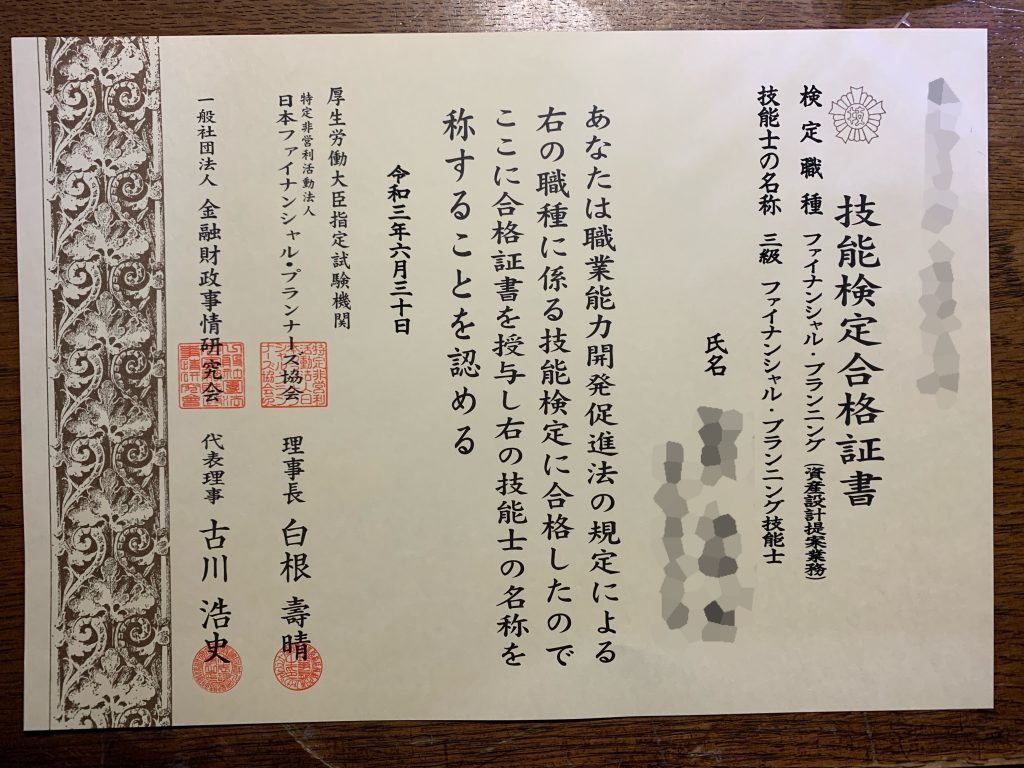 技能検定合格証書
検定職種 ファイナンシャル・プランニング (資産設計提案業務)
技能士の名称 三級 ファイナンシャル・プランニング技能士
氏名
あなたは職業能力開発促進法の規定による
右の職種に係る技能検定に合格したので
ここに合格証書を授与し右の技能士の名称を
称することを認める
令和三年六月三十日
厚生労働大臣指定試験機関
特定非営利活動法人
日本ファイナンシャル・プランナーズ協会 理事長 白根 壽晴
一般社団法人 金融財政事情研究会 代表理事 古川 浩史